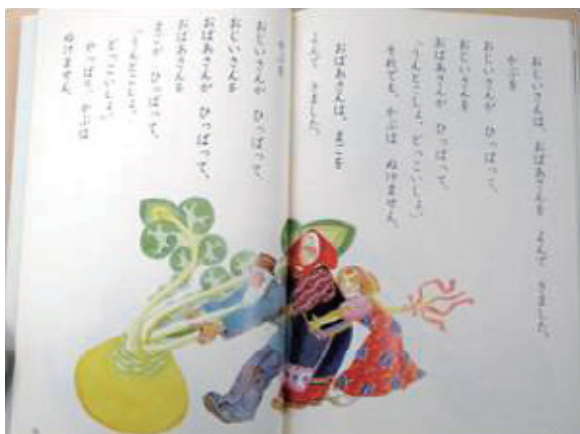 おじいさんは、おばあさんを よんで きました。
かぶを
おじいさんが ひっぱって、
おじいさんを
おばあさんが ひっぱって、
「うんとこしょ、どっこいしょ。」
それでも、かぶは ぬけません。
おばあさんは、まごを
よんで きました。
かぶを
おじいさんが ひっぱって、
おじいさんを
おばあさんが ひっぱって、
おばあさんを
まごが ひっぱって、
「うんとこしょ、
どっこいしょ。」
やっぱり、かぶは
ぬけません。